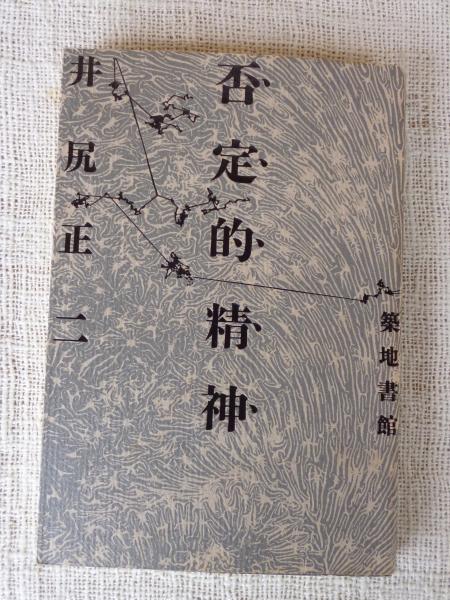 否定的精神
井尻正二
築地書館